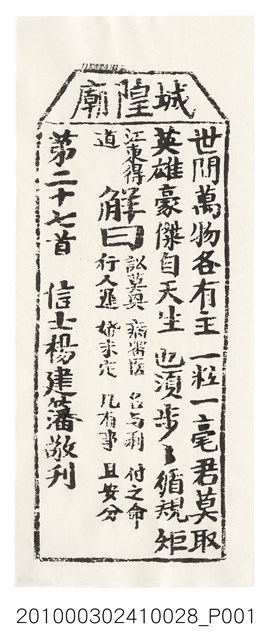 城隍廟
世間萬物各有主 一粒一毫君莫取
英雄豪傑自天生 也須步々循規矩
江東得
道
解曰
訟莫興 病審医 名与利 付之命
行人遲 婚未定 凡有事 且安分
第二十七首 信士楊建藩敬刊
201000302410028_P001